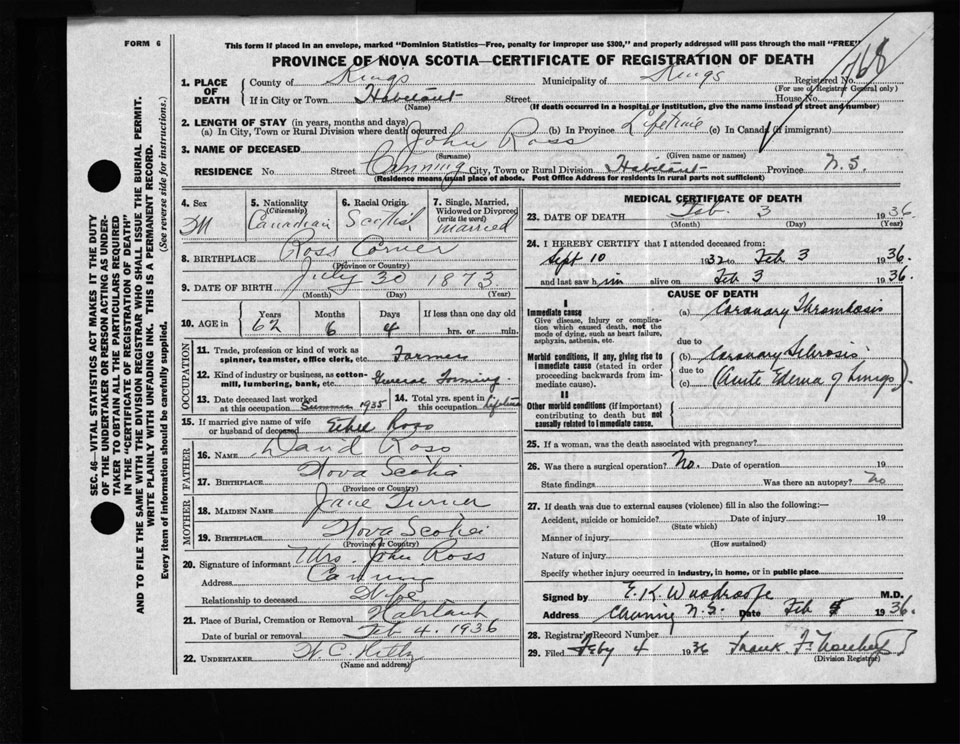 FORM 6
This form if placed in an envelope, marked "Dominion Statistics—Free, penalty for improper use $300," and properly addressed will pass through the mail "FREE"
PROVINCE OF NOVA SCOTIA—CERTIFICATE OF REGISTRATION OF DEATH
1. PLACE OF DEATH County of Kings Municipality of Kings Registered No. 768
(For use of Registrar General only)
If in City or Town Habitant Street House No.
(Name) (If death occurred in a hospital or institution, give the name instead of street and number)
2. LENGTH OF STAY (in years, months and days)
(a) In City, Town or Rural Division where death occurred (b) In Province Lifetime (c) In Canada (if immigrant)
3. NAME OF DECEASED John Ross
(Surname) (Given name or names)
RESIDENCE No. Street Canning City, Town or Rural Division Habitant Province N.S.
(Residence means usual place of abode. Post Office Address for residents in rural parts not sufficient)
4. Sex M 5. Nationality (Citizenship) Canadian 6. Racial Origin Scottish 7. Single, Married, Widowed or Divorced (write the word) Married
8. BIRTHPLACE Ross Corner
(Province or Country)
9. DATE OF BIRTH July 30 1873
(Month) (Day) (Year)
10. AGE in Years 62 Months 6 Days 4 If less than one day old hrs. or min.
OCCUPATION
11. Trade, profession or kind of work as spinner, teamster, office clerk, etc. Farmer
12. Kind of industry or business, as cotton-mill, lumbering, bank, etc. General Farming
13. Date deceased last worked at this occupation Summer 1935 14. Total yrs. spent in this occupation Lifetime
15. If married give name of wife or husband of deceased Ethel Ross
FATHER
16. NAME David Ross
17. BIRTHPLACE Nova Scotia
(Province or Country)
MOTHER
18. MAIDEN NAME Jane Turner
19. BIRTHPLACE Nova Scotia
(Province or Country)
20. Signature of informant Mrs. John Ross
Address Canning
Relationship to deceased Wife
21. Place of Burial, Cremation or Removal Habitant
Date of burial or removal Feb 4. 1936
22. UNDERTAKER W. C. Hiltz
(Name and address)
MEDICAL CERTIFICATE OF DEATH
23. DATE OF DEATH Feb. 3 1936
(Month) (Day) (Year)
24. I HEREBY CERTIFY that I attended deceased from:
Sept 10 1932 to Feb 3 1936.
and last saw him alive on Feb 3 1936.
CAUSE OF DEATH
I
Immediate cause
Give disease, injury or complication which caused death, not the mode of dying, such as heart failure, asphyxia, asthenia, etc.
(a) Coronary Thrombosis
due to
Morbid conditions, if any, giving rise to immediate cause (stated in order proceeding backwards from immediate cause).
(b) Coronary Sclerosis
due to
(c) (Acute Edema of Lungs)
II
Other morbid conditions (if important) contributing to death but not causally related to immediate cause.
25. If a woman, was the death associated with pregnancy?
26. Was there a surgical operation? No. Date of operation 19
State findings Was there an autopsy? No
27. If death was due to external causes (violence) fill in also the following:—
Accident, suicide or homicide? Date of injury 19
(State which)
Manner of injury
(How sustained)
Nature of injury
Specify whether injury occurred in industry, in home, or in public place
Signed by E. K. Woodroofe M.D.
Address Canning N.S. Date Feb 1936.
28. Registrar's Record Number
29. Filed Feby 4 1936 Frank F.
(Division Registrar)
SEC. 46—VITAL STATISTICS ACT MAKES IT THE DUTY
OF THE UNDERTAKER OR PERSON ACTING AS UNDER-
TAKER TO OBTAIN ALL THE PARTICULARS REQUIRED
IN THE "CERTIFICATE OF REGISTRATION OF DEATH"
AND TO FILE THE SAME WITH THE DIVISION REGISTRAR WHO SHALL ISSUE THE BURIAL PERMIT.
WRITE PLAINLY WITH UNFADING INK. THIS IS A PERMANENT RECORD.
Every item of information should be carefully supplied. (See reverse side for instructions.)